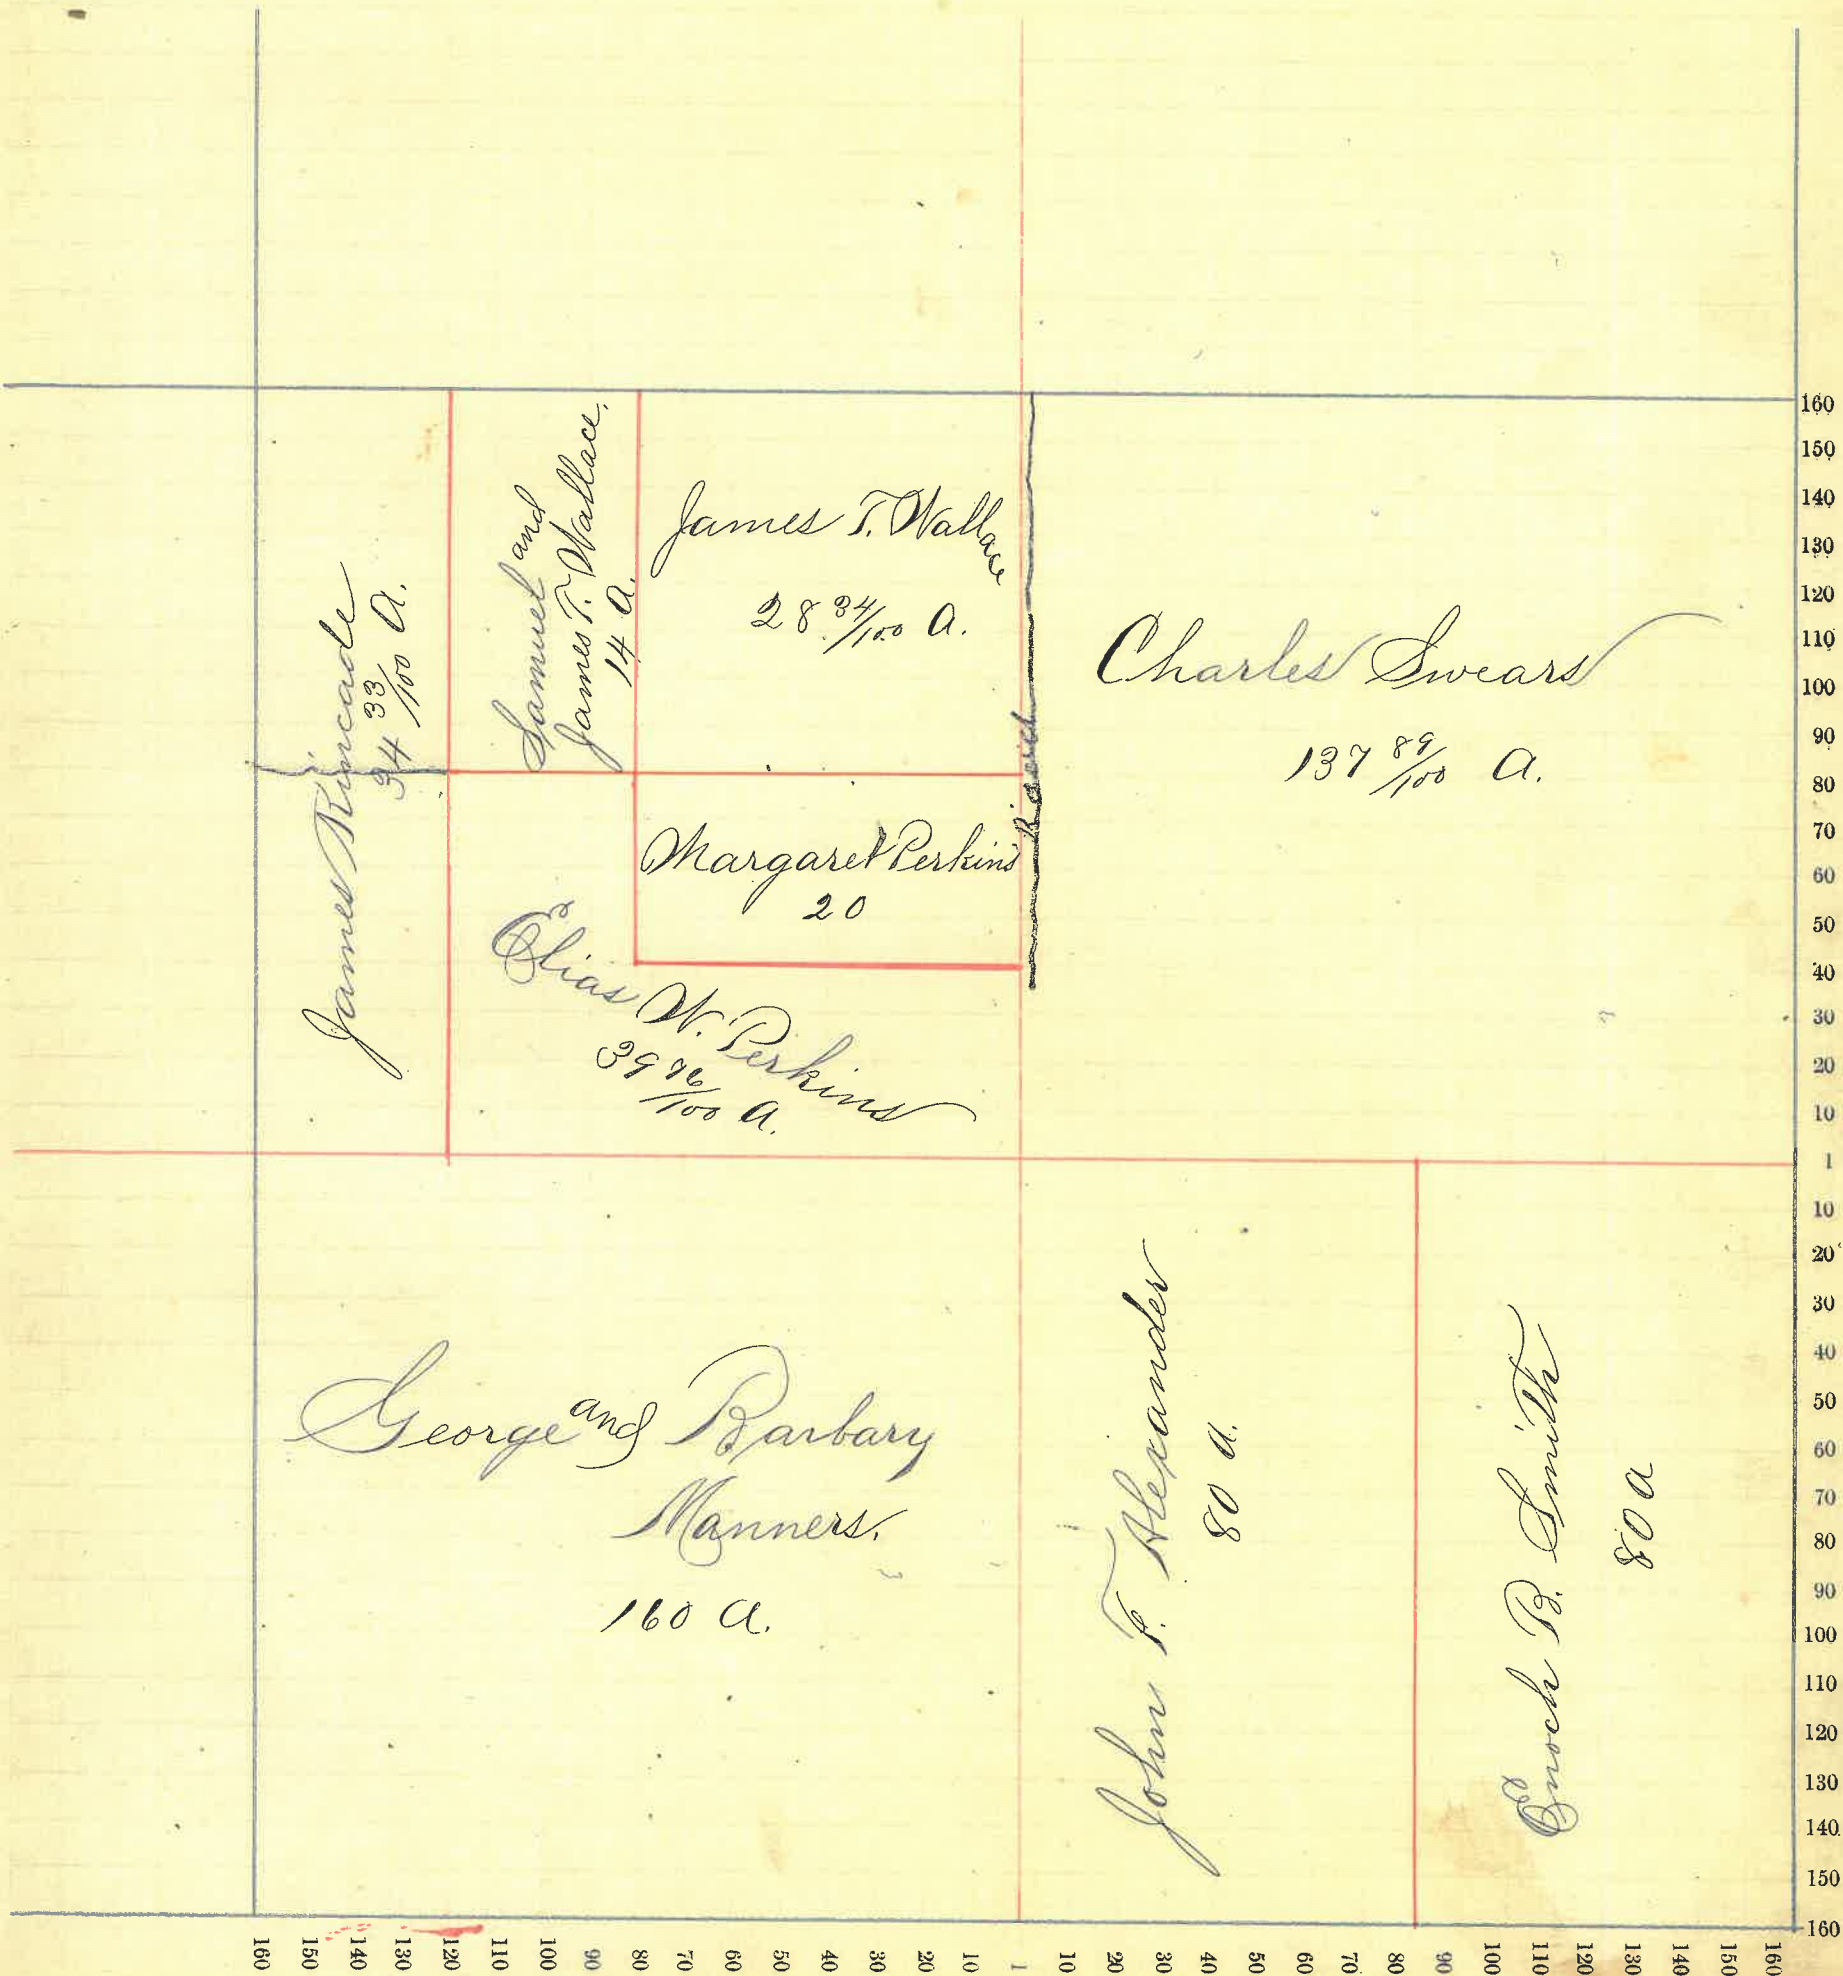 Samuel and
James T. Wallace,
14 a.
James T. Wallace
28 34/100 a.
James Kincade
34 33/100 a.
Charles Swears
137 89/100 a.
Margaret Perkins
20
Elias W. Perkins
39 76/100 a.
George and Barbary
Manners.
160 a.
John F. Alexander
80 a.
Enoch B. Smith
80 a
160
150
140
130
120
110
100
90
80
70
60
50
40
30
20
10
1
10
20
30
40
50
60
70
80
90
100
110
120
130
140
150
160
160 150 140 130 120 110 100 90 80 70 60 50 40 30 20 10 1 10 20 30 40 50 60 70 80 90 100 110 120 130 140 150 160